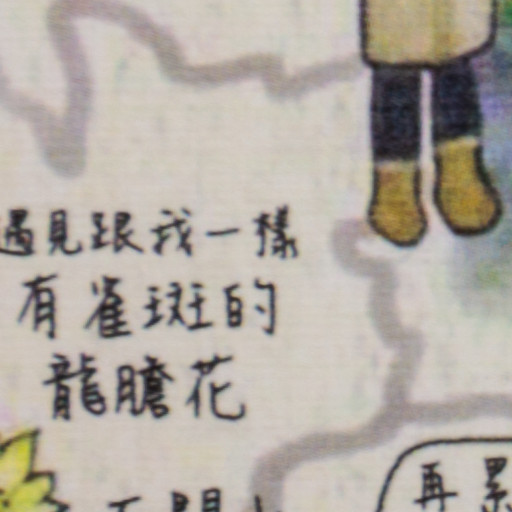 遇見跟我一樣
有雀斑的
龍膽花
再累